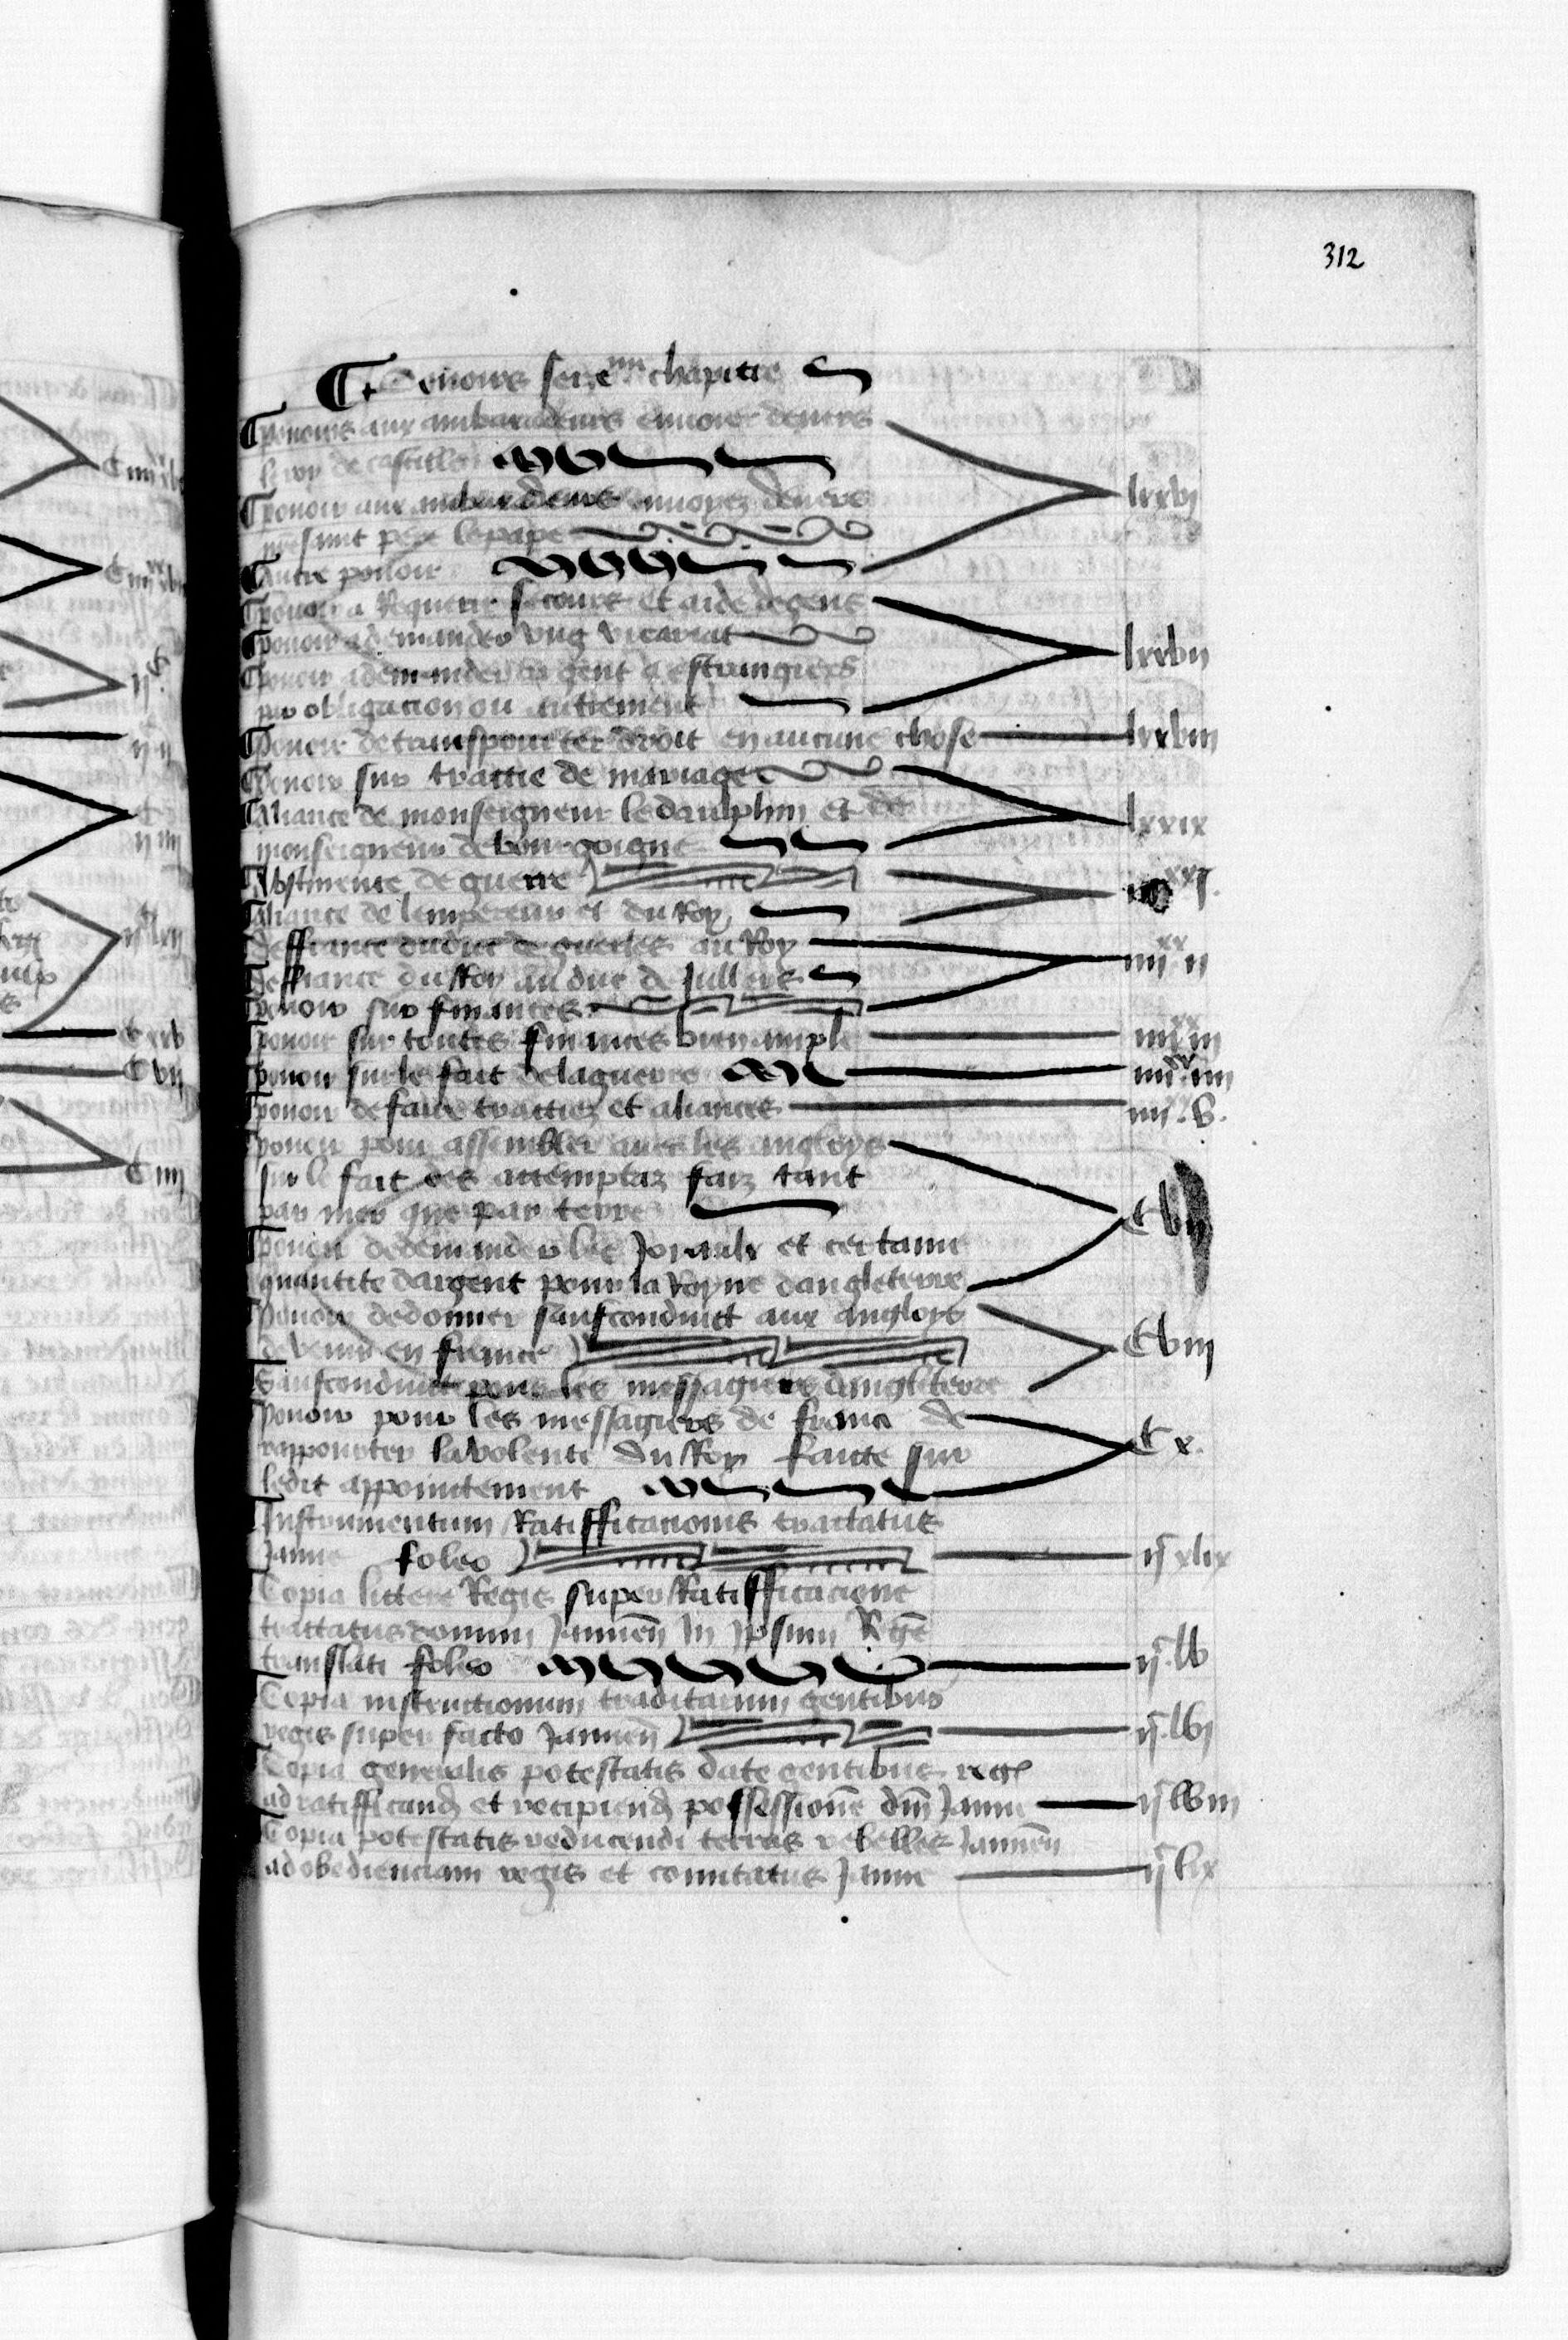 312
Pouoirs sezeme chapitre
Pouoirs aux ambaxadeurs enuoiez deuers
le roy de castille
Pouoir aux ambaxadeurs enuoyez deuers
nostre saint pere le pape lxxvj
Autre pouoir
Pouoir a Requerir secours et aide de gens
Pouoir a demander vng vicariat lxxvij
Pouoir a demander argent a estrangiers
par obligacion ou autrement
Pouoir de transpourter droit en aucune chose lxxviij
Pouoir sur traictie de mariage
Aliance de monseigneur le daulphin et de lxxix
monseigneur de bourgoigne
Abstinence de guerre
Aliance de lempereur et du Roy
Deffiance du duc de guerles au Roy
Deffiance du Roy au duc de Jullers iiijxx ij
Pouoir sur finances
Pouoir sur toutes finances bien ample iiijxx iij
Pouoir sur le fait de la guerre iiijxx iiij
Pouoir de faire traictiez et aliances iiijxx v
Pouoir pour assembler auec les angloys
sur le fait des attemptaz faiz tant
par mer que par terre Cvij
Pouoir de demander les Joyaulx et certaine
quantite dargent pour la Royne dangleterre
Pouoir de donner saufconduit aux angloys
de venir en france Cviij
Saufconduit pour les messagiers dangleterre
Pouoir pour les messagiers de france de
rappourter la volente du Roy faicte sur Cx
ledit appointement
Instrumentum Ratifficacionis tractatus
Janue folio ijc xlix
Copia littere Regis super Ratifficacione
tractatus domini Januen in ipsum Rege
translati folio ijc lv
Copia instructionum traditarum gentibus
regis super facto Januen ijc lvj
Copia generalis potestatis date gentibus reg
ad ratifficand et recipiend possessione dni Janue ijc lviij
Copia potestatis reducendi terras rebelles Januen
ad obedienciam regis et comitatus Janue ijc lix